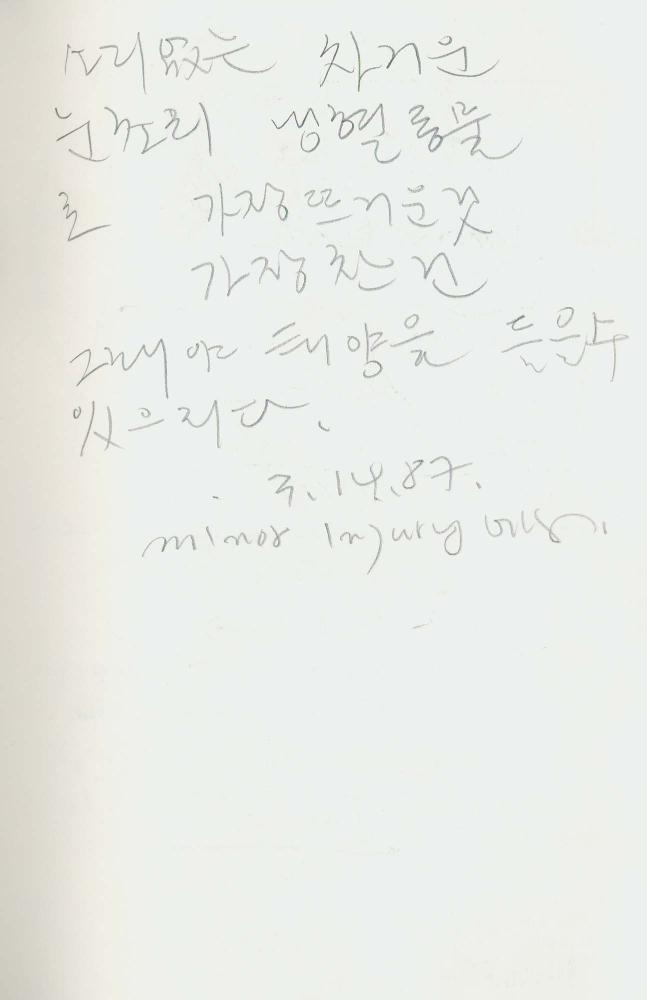 소리없는 차거운
눈초리 냉혈동물
로 가장뜨거운것
가장찬건
그래야 태양을 들을수
있으리다.
3.14.87.
minor injury